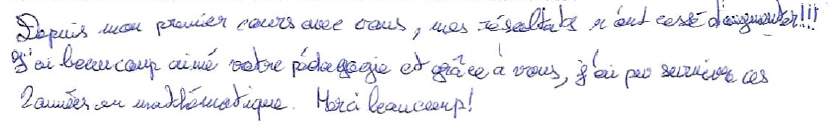 Depuis mon premier cours avec vous, mes résultats n'ont cessé d'augmenter!!!
J'ai beaucoup aimé votre pédagogie et grâce à vous, j'ai pu survivre ces
2 années en mathématique. Merci beaucoup!